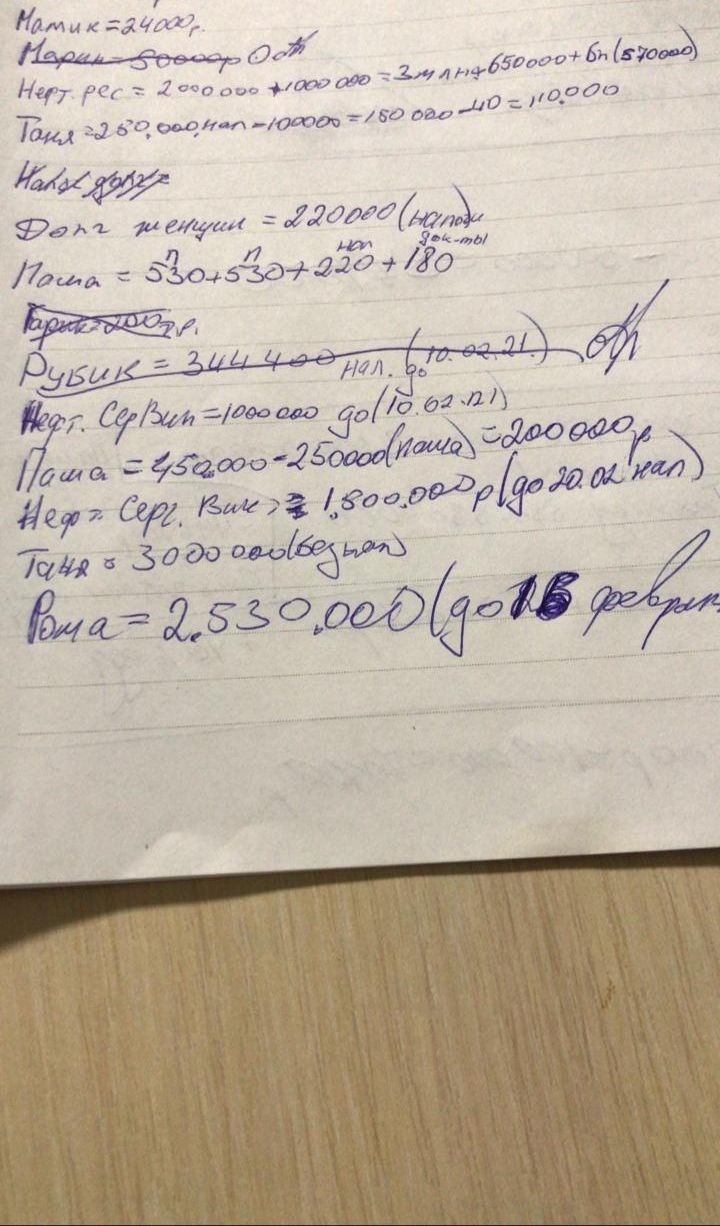 Мамик = 24000р.
Марин = 50000р Отд
Нефт. рес = 2000000 + 1000000 = 3млн + 650000 + бн (570000)
Таня = 250.000 нал - 100000 = 150 000 - 40 = 110.000
Долг женщин = 220000 (налоги
Паша = 530 + 530 + 220 + 180
п п нал док-ты
Гарик = 200 т.р.
Рубик = 344 400 нал. до (10.02.21.) отд
Нефт. СерВик = 1000000 до (10.02.21)
Паша = 450.000 - 250000 (паша) = 200000р
Неф = Серг. Вик = 1.800.000 р (до 20.02 нал)
Таня = 3000 000 (безнал)
Рома = 2.530.000 (до 15 февраля